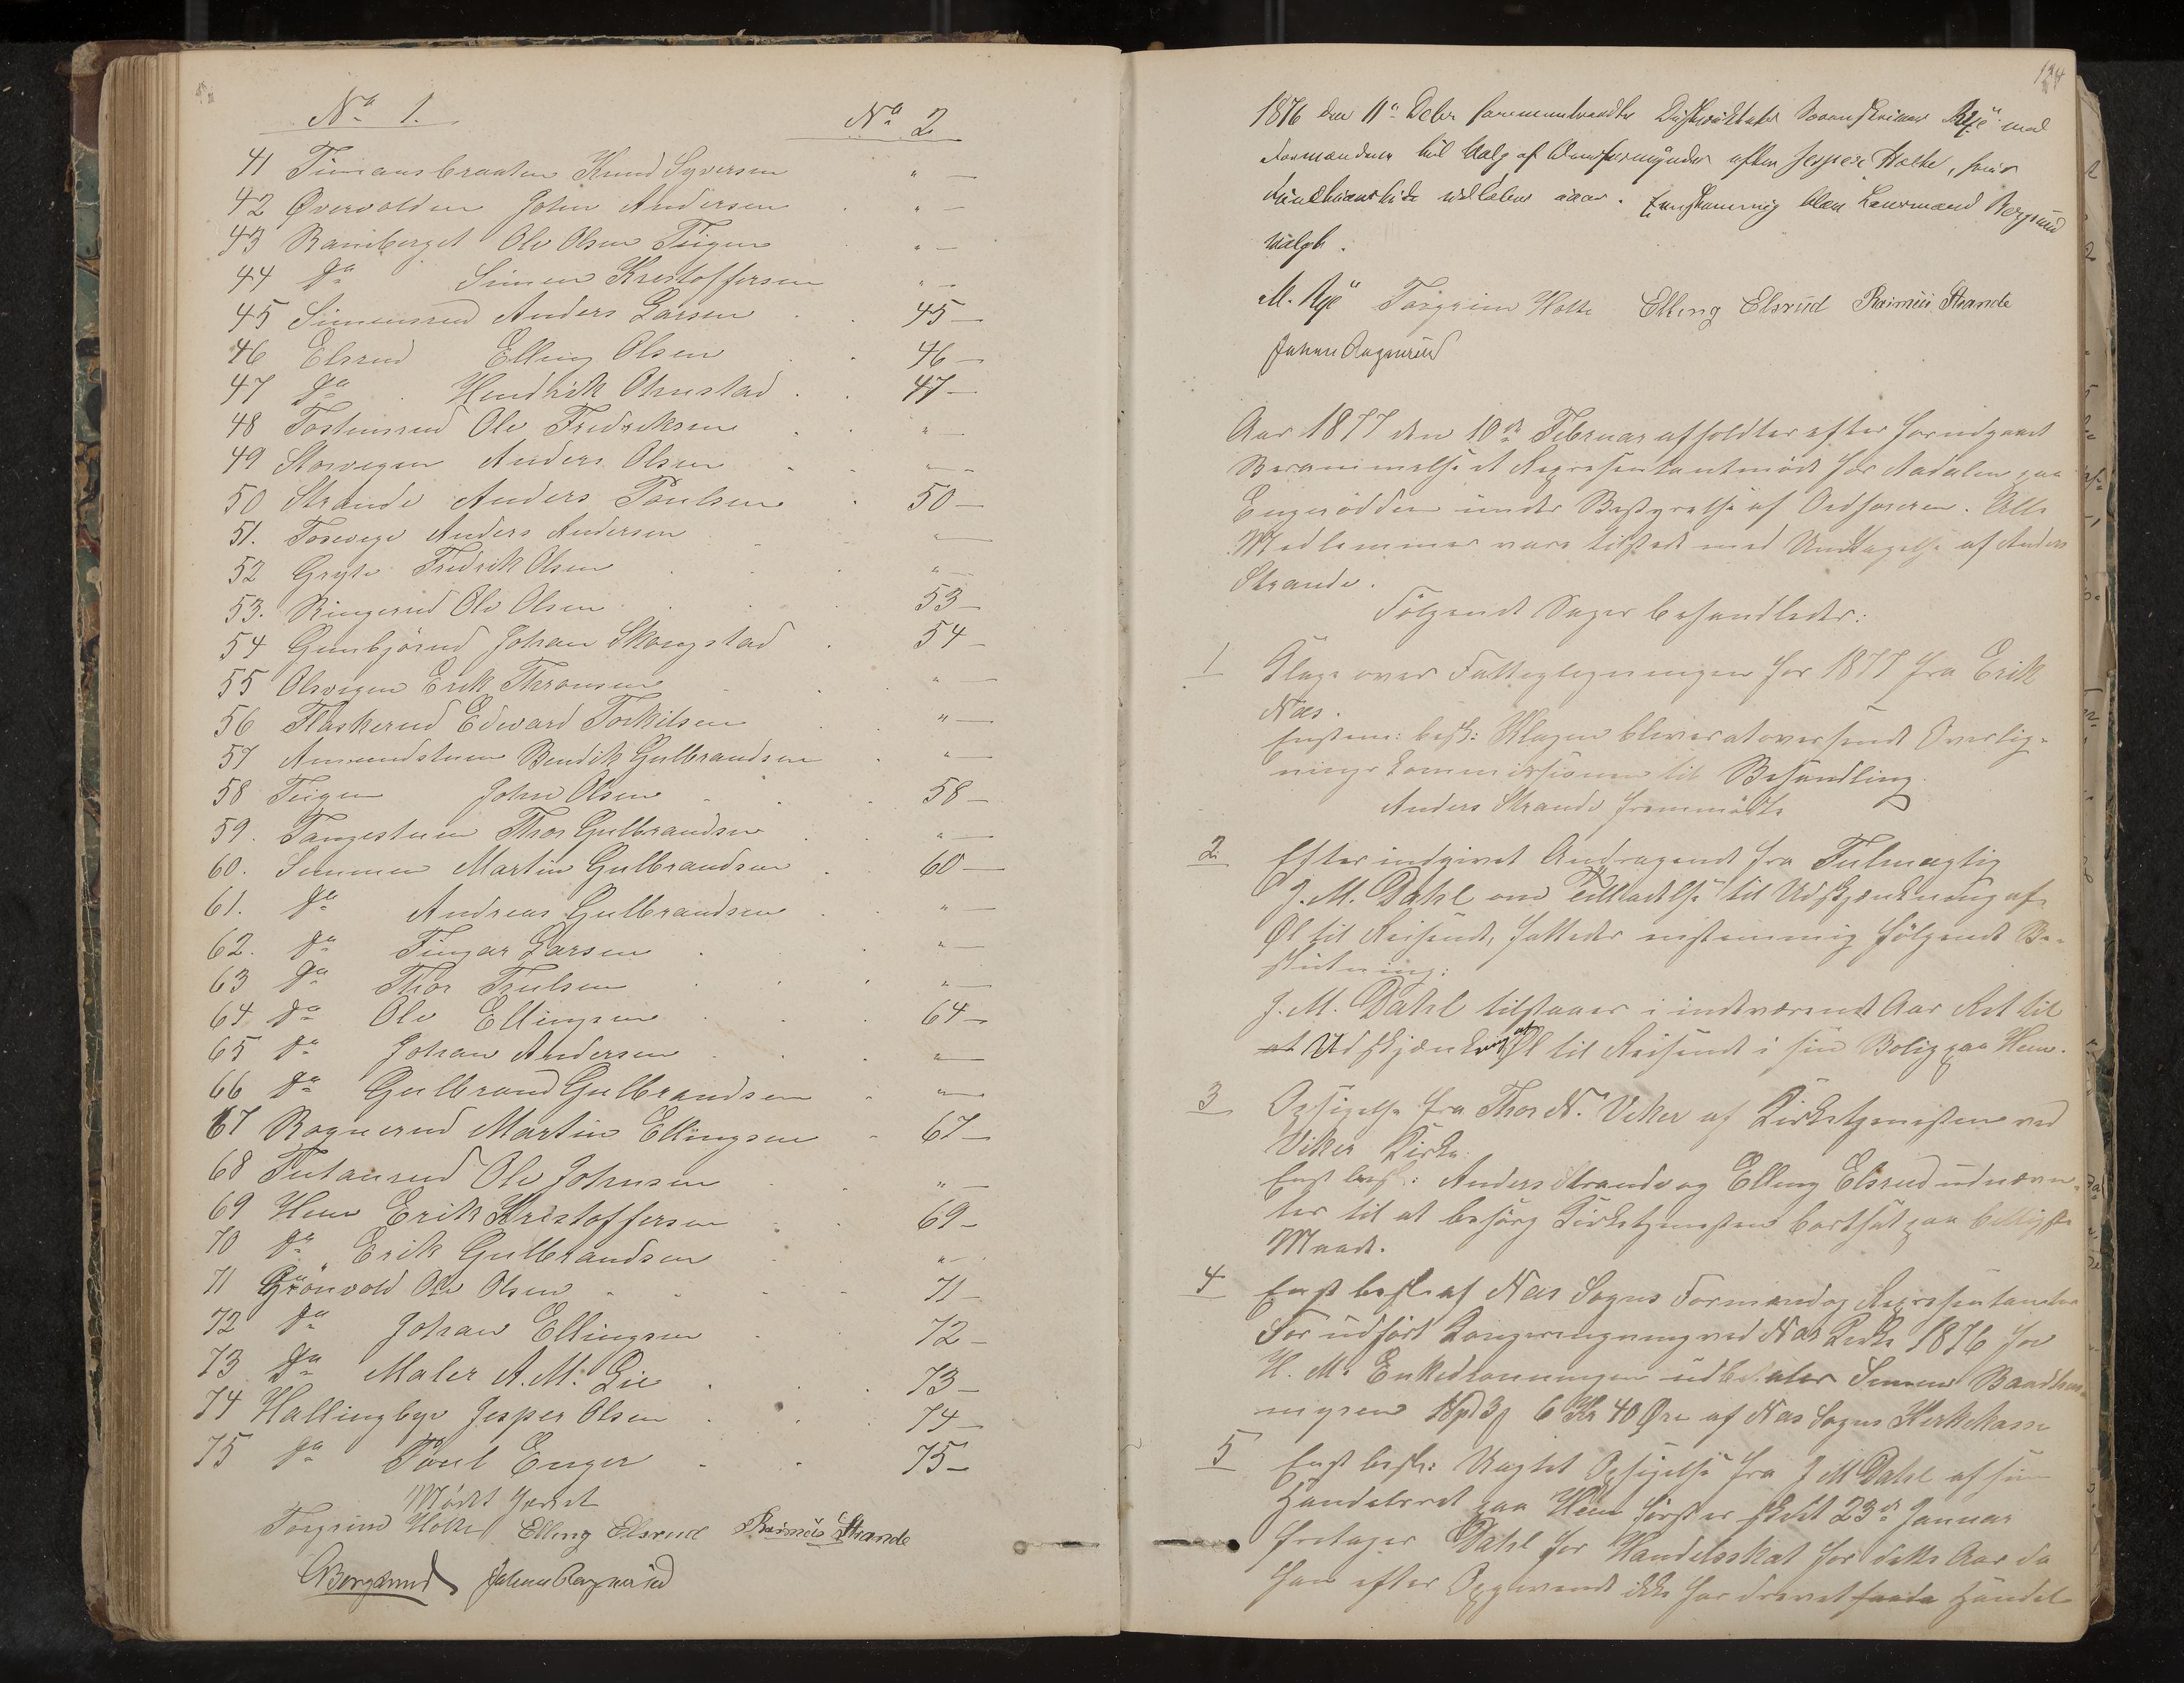 No 1. No 2
41 Timansbraaten Knud Syversen " —
42 Øvervolden John Andersen " —
43 Ramberget Ole Olsen Teigen " —
44 do Simen Kristoffersen " —
45 Simensrud Anders Larsen 45 —
46 Elsrud Elling Olsen 46 —
47 do Hendrik Olmstad 47 —
48 Tostensrud Ole Fredriksen " —
49 Storvegen Anders Olsen " —
50 Strande Anders Poulsen 50 —
51. Anders Andersen " —
52 Gryte Fredrik Olsen " —
53. Ringerud Ole Olsen 53 —
54 Gunbjørud Johan Skougstad 54 —
55 Olsvegen Erik Thronsen " —
56 Flaskerud Edward Torkilsen " —
57 Amundstuen Bendik Gulbrandsen " —
58 Teigen John Olsen 58 —
59. Tangestuen Thor Gulbrandsen " —
60. Semmen Martin Gulbrandsen 60 —
61. do Andreas Gulbrandsen " —
62. do Larsen " —
63 do Thor Trulsen " —
64 do Ole Ellingsen 64 —
65 do Johan Andersen " —
66 do Gulbrand Gulbrandsen " —
67 Ragnerud Martin Ellingsen 67 —
68 Tutanrud Ole Johnsen " —
69 Hen Erik Kristoffersen 69 —
70 do Erik Gulbrandsen " —
71 Grönvold Ole Olsen 71 —
72 do Johan Ellingsen 72 —
73 do Maler A. M. Lie 73 —
74 Hallingbye Jesper Olsen 74 —
75 do Poul Enger 75 —
Mødet hævet
Torgrim Holte Elling Elsrud Rasmus Strande
Bergsund Johan Ragnerud
1876 den 11te Debr sammentraadte Sorenskriver Rye med
Formændene til Valg af efter Jesper Holte, hvis
udløben aaer. Enstemmig blev Lensmand Bergsund
valgt.
M. Rye Torgrim Holte Elling Elsrud Rasmus Strande
Johan Ragnerud
Aar 1877 den 10de Februar afholdtes efter forudgaaet
Berammelse et Repræsentantmøde for Aadalen paa
Engerodden under Bestyrelse af Ordføreren. Alle
Medlemmer vare tilstede med Undtagelse af Anders
Strande.
Følgende Sager behandledes:
1 Klage over Fattigligningen for 1877 fra Erik
Næs.
Enstem: besl: Klagen bliver at oversende Overlig-
ningskommissionen til Behandling.
Anders Strande fremmødte
2 Efter indgivet Andragende fra Fulmægtig
J. M. Dahl om Tilladelse til Udskjænkning af
Øl til Reisende, fattedes enstemmig følgende Be-
slutning:
J. M. Dahl tilstaaes i indeværende Aar Ret til
at Udskjænkning af Øl til Reisende i sin Bolig paa Hen.
3 Opsigelse fra Thor N. Viker af Kirketjenesten ved
Viker Kirke.
Enst besl: Anders Strande og Elling Elsrud udnævn-
tes til at besørg Kirketjenesten bortsat paa billigste
Maade.
4 Enst besl. af Næs Sogns Formænd og Repræsentanter
For udført ved Næs Kirke 1876 for
H. M. Enkedronningen udbetales Simen
6 Kr 40 Øre af Næs Sogns Kirkekasse
5 Enst besl: Uagtet Opsigelse fra J M Dahl af sin
Handelsret paa Hen først er skeet 23de Januar
fritages Dahl for Handelsskat for dette Aar da
han efter Opgivende ikke har drevet Handel